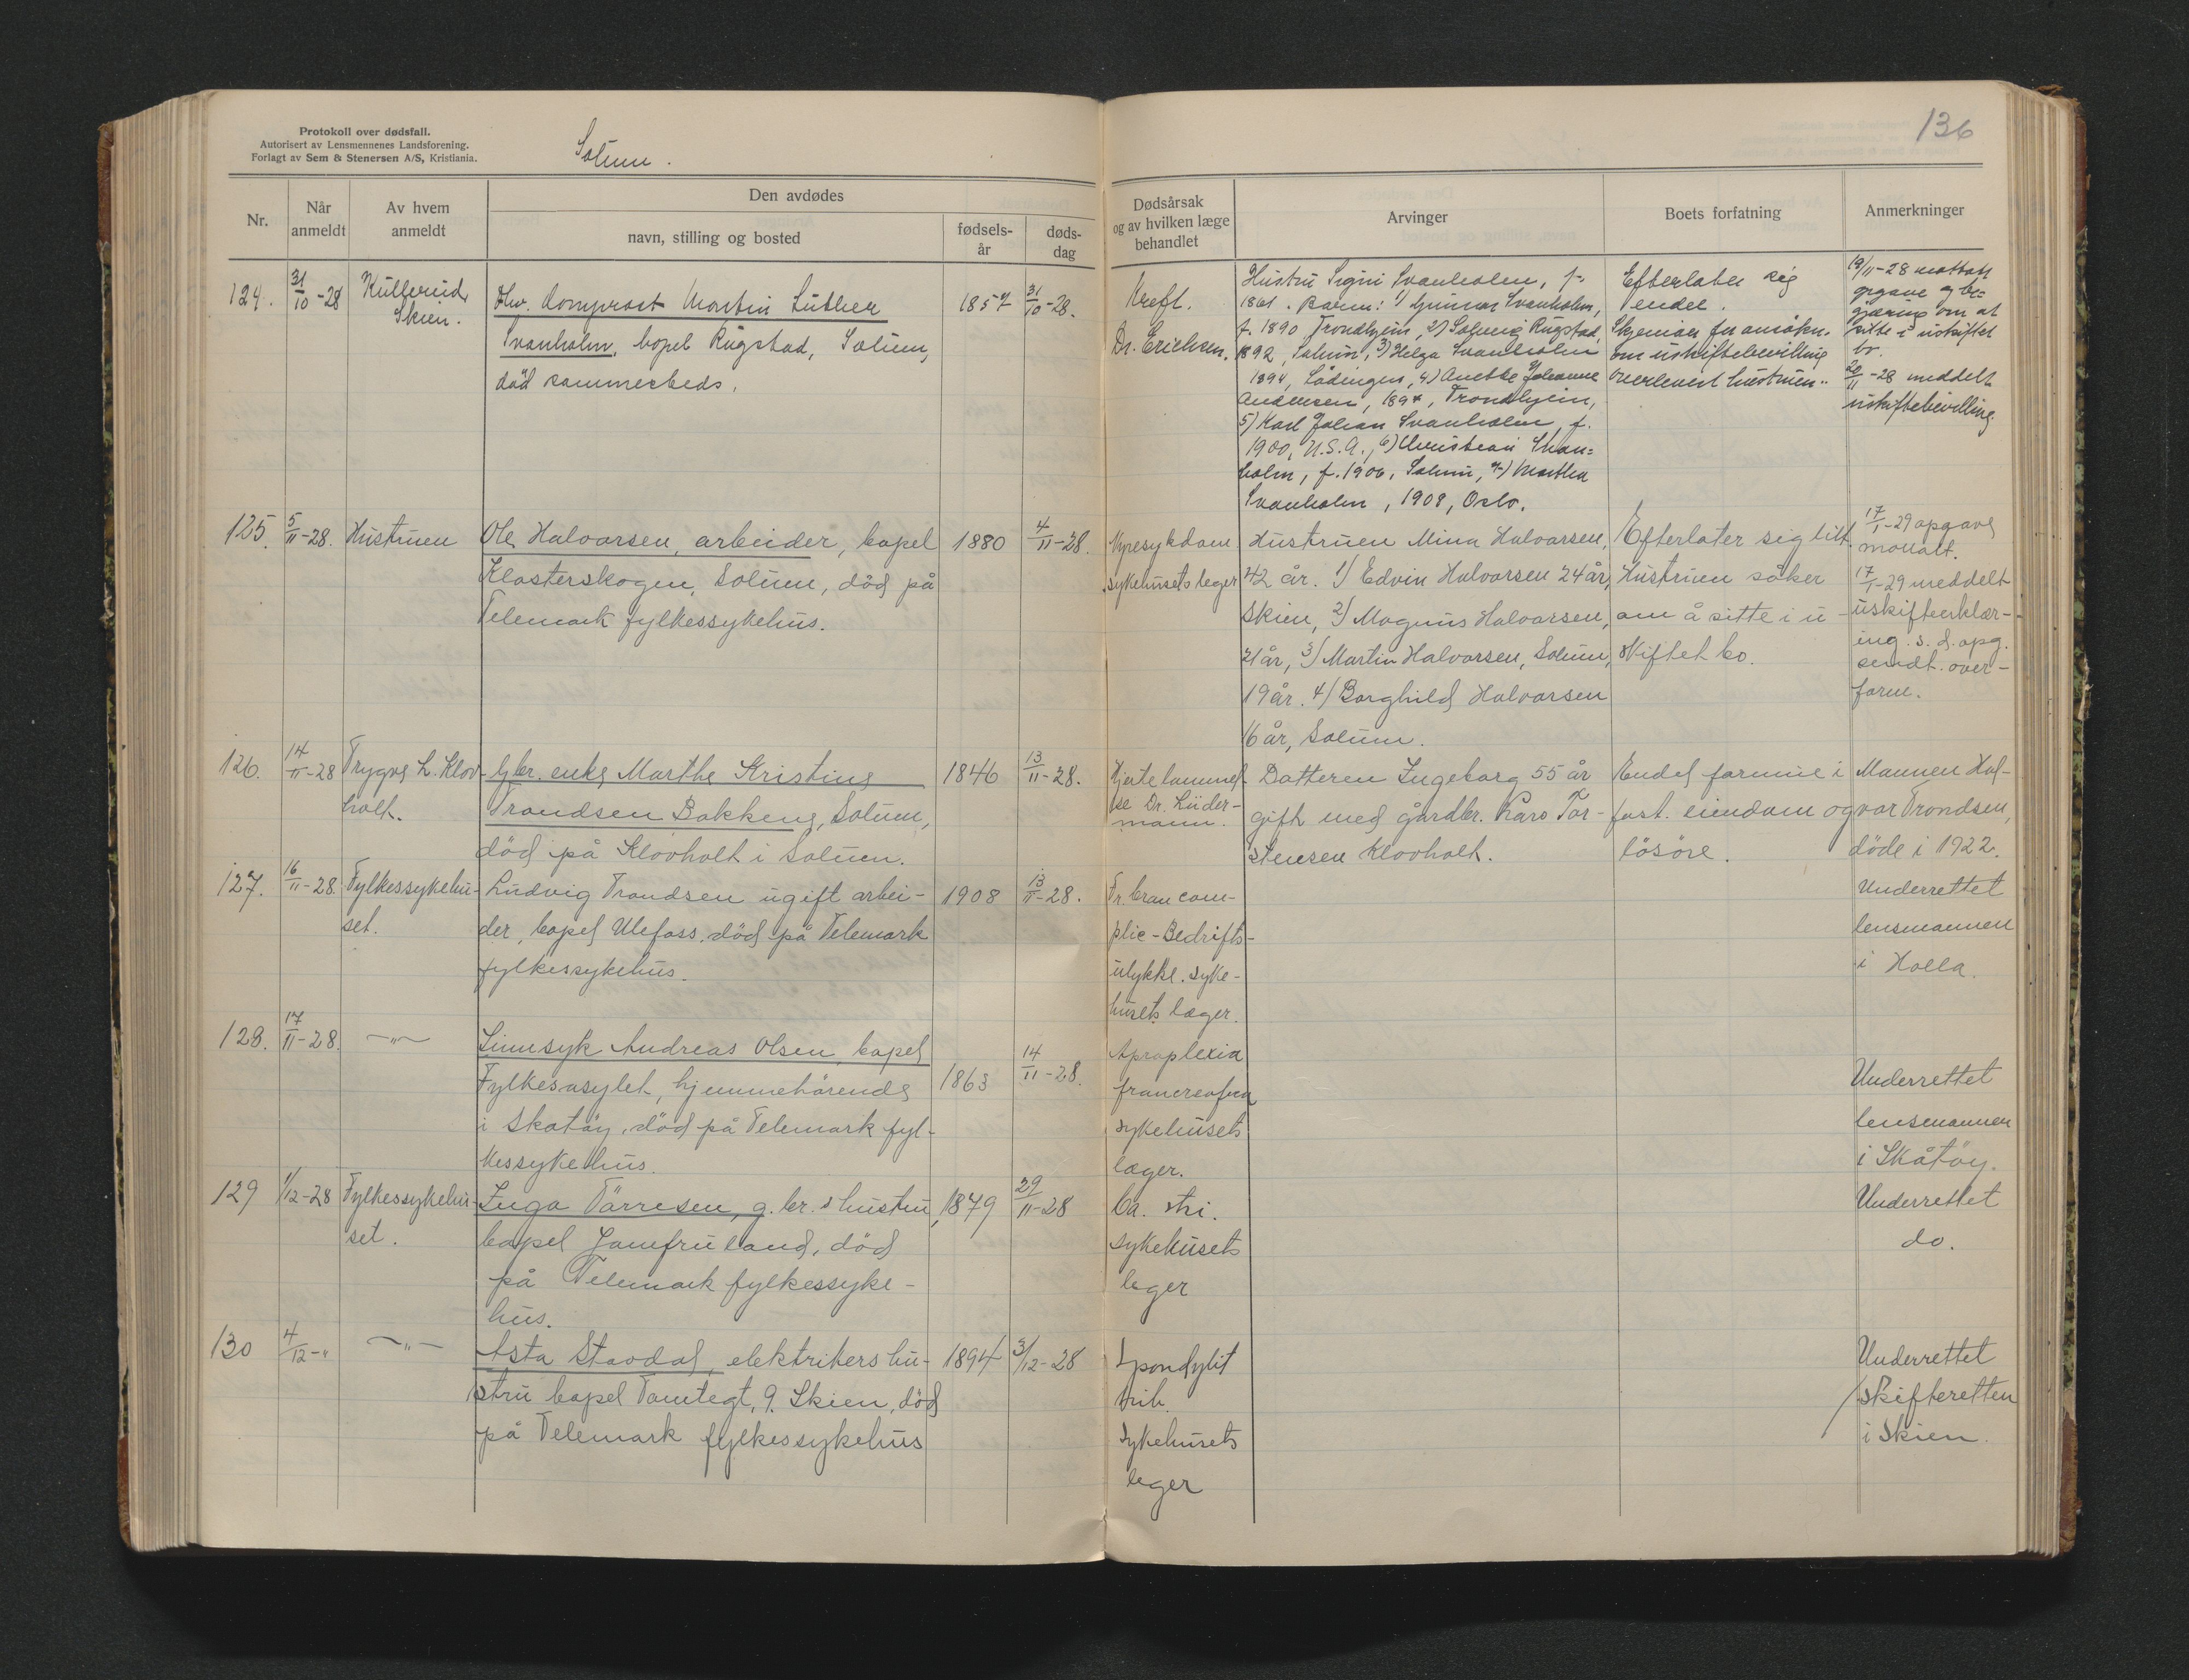 Protokoll over dødsfall.
Autorisert av Lensmennenes Landsforening.
Forlagt av Sem & Stenersen A/S, Kristiania.
Solum.
136
Nr.
Når anmeldt
Av hvem anmeldt
Den avdødes
navn, stilling og bosted
fødsels-år
døds-dag
Dødsårsak
og av hvilken læge
behandlet
Arvinger
Boets forfatning
Anmerkninger
124.
31/10-28
Kullerud,
Skien.
Fhv. domprost Martin Luther
Svanholm, bopel Rugstad, Solum,
död sammesteds.
1857
31/10-28.
Kreft.
Dr. Erichsen.
Hustru Signi Svanholm, f.
1861. Barn: 1) Gunnar Svanholm,
f. 1890 Trondhjem, 2) Solveig Rugstad,
1892, Solum, 3) Helga Svanholm
1894, Lödingen, 4) Anette Johanne
Andersen, 1897, Trondhjem,
5) Karl Johan Svanholm, f.
1900, U.S.A., 6) Christian Svan=
holm, f. 1906, Solum, 7) Martha
Svanholm, 1908, Oslo.
Efterlater sig
endel.
Skjemaer for ansökn.
om uskiftebevilling
overlevert hustruen.
19/11-28 mottatt
opgave og be-
gjæring om at
sitte i uskiftet
bo.
20/11-28 meddelt
uskiftebevilling.
125.
5/11-28.
Hustruen
Ole Halvorsen, arbeider, bopel
Klosterskogen, Solum, död på
Telemark fylkessykehus.
1880
4/11-28.
Nyresykdom
sykehusets leger
Hustruen Mina Halvorsen,
42 år. 1) Edvin Halvorsen 24 år,
Skien, 2) Magnus Halvorsen,
21 år, 3) Martin Halvorsen, Solum,
19 år. 4) Borghild Halvorsen
16 år, Solum.
Efterlater sig litt.
Hustruen söker
om å sitte i u-
skiftet bo.
17/1-29 opgave
mottatt.
17/1-29 meddelt
uskifteerklær-
ing. s. d. opg.
sendt over-
form.
126.
14/11-28
Trygve L. Klov-
holt.
Gbr. enke Marthe Kristine
Trondsen Bakkene, Solum,
död på Klovholt i Solum.
1846
13/11-28.
Hjertelammel-
se Dr. Lüder-
mann.
Datteren Ingeborg 55 år
gift med gårdbr. Karo Tor-
stensen Klovholt.
Endel formue i
fast. eiendom og
lösöre.
Mannen Hal-
vor Trondsen,
döde i 1922.
127.
16/11-28
Fylkessykehu-
set.
Ludvig Trondsen ugift arbei-
der, bopel Ulefoss, död på Telemark
fylkessykehus.
1908
13/11-28.
Fr. cran com-
plic - Bedrifts-
ulykke. syke-
husets læger.
Underrettet
lensmannen
i Holla.
128.
17/11-28.
—„—
Sinnsyk Andreas Olsen, bopel
Fylkesasylet, hjemmehörende
i Skåtöy, död på Telemark fyl-
kessykehus.
1863
14/11-28.
Apoplexia
sykehusets
læger.
Underrettet
lensmannen
i Skåtöy.
129
1/12-28
Fylkessykehu-
set.
Inga Törresen, g.br.s hustru,
bopel Jomfruland, död
på Telemark fylkessyke-
hus.
1879
29/11-28
Ca. stri.
sykehusets
leger
Underrettet
do.
130
4/12-„
—„—
Asta Stavdal, elektrikers hu-
stru bopel Tomtegt, 9. Skien, död
på Telemark fylkessykehus
1894
3/12-28
Spondylit
sykehusets
leger
Underrettet
skifteretten
i Skien.